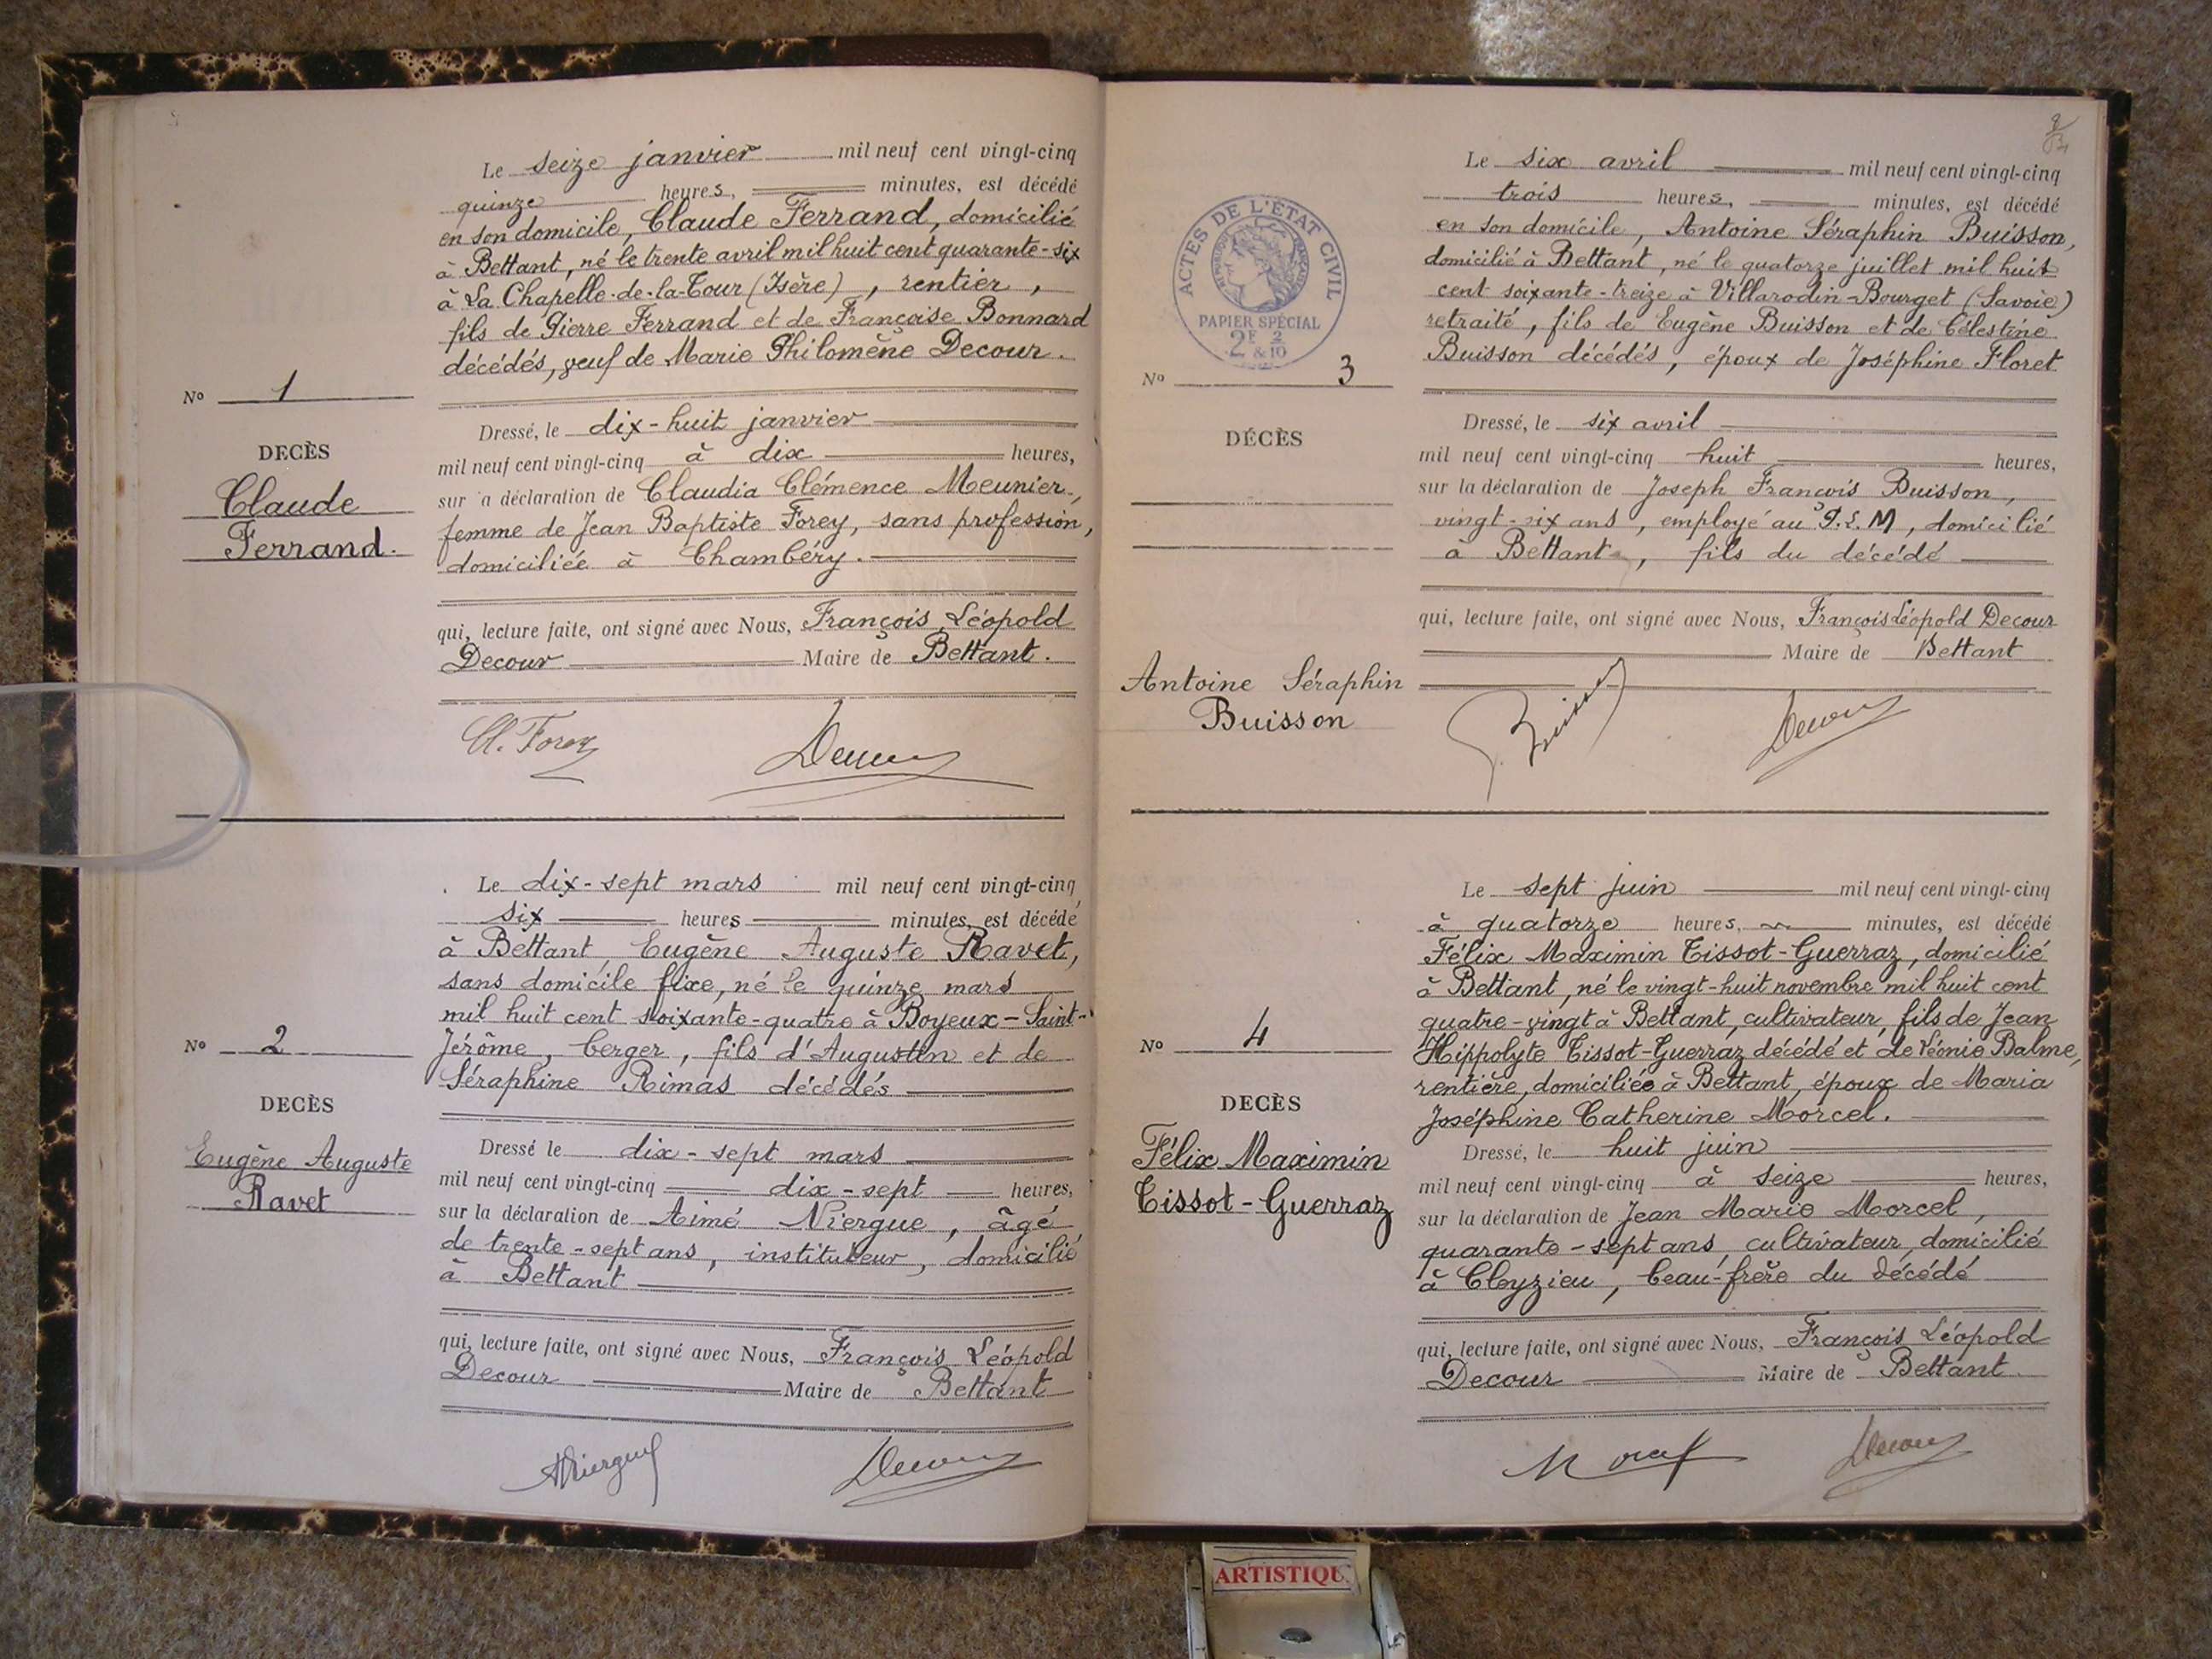 Le seize janvier mil neuf cent vingt-cinq
quinze heures, minutes, est décédé
en son domicile, Claude Ferrand, domicilié
à Bettant, né le trente avril mil huit cent quarante-six
à La Chapelle-de-la-Tour (Isère), rentier,
fils de Pierre Ferrand et de Françoise Bonnard
décédés, veuf de Marie Philomène Decour.
No 1
DECÈS
Claude
Ferrand.
Dressé, le dix-huit janvier
mil neuf cent vingt-cinq à dix heures,
sur a déclaration de Claudia Clémence Meunier,
femme de Jean Baptiste Forey, sans profession,
domiciliée à Chambéry.
qui, lecture faite, ont signé avec Nous, François Léopold
Decour Maire de Bettant.
Cl. Forey
Decour
Le dix-sept mars mil neuf cent vingt-cinq
six heures minutes, est décédé
à Bettant, Eugène Auguste Ravet,
sans domicile fixe, né le quinze mars
mil huit cent soixante-quatre à Boyeux-Saint-
Jérôme, berger, fils d'Augustin et de
Séraphine Rimas décédés
No 2
DECÈS
Eugène Auguste
Ravet
Dressé le dix-sept mars
mil neuf cent vingt-cinq dix-sept heures,
sur la déclaration de Aimé Niergue, âgé
de trente-sept ans, instituteur, domicilié
à Bettant
qui, lecture faite, ont signé avec Nous, François Léopold
Decour Maire de Bettant
ANiergue
Decour
ACTES DE L'ÉTAT CIVIL
RÉPUBLIQUE FRANÇAISE
PAPIER SPÉCIAL
2F 2/10
& 10
Le six avril mil neuf cent vingt-cinq
trois heures, minutes, est décédé
en son domicile, Antoine Séraphin Buisson,
domicilié à Bettant, né le quatorze juillet mil huit
cent soixante-treize à Villarodin-Bourget (Savoie)
retraité, fils de Eugène Buisson et de Célestine
Buisson décédés, époux de Joséphine Floret.
No 3
DÉCÈS
Antoine Séraphin
Buisson
Dressé, le six avril
mil neuf cent vingt-cinq huit heures,
sur la déclaration de Joseph François Buisson,
vingt-six ans, employé au P.L.M, domicilié
à Bettant, fils du décédé
qui, lecture faite, ont signé avec Nous, François Léopold Decour
Maire de Bettant
Buisson
Decour
Le sept juin mil neuf cent vingt-cinq
à quatorze heures, minutes, est décédé
Félix Maximin Tissot-Guerraz, domicilié
à Bettant, né le vingt-huit novembre mil huit cent
quatre-vingt à Bettant, cultivateur, fils de Jean
Hippolyte Tissot-Guerraz décédé et de Léonie Balme,
rentière, domiciliée à Bettant, époux de Maria
Joséphine Catherine Morcel.
No 4
DECÈS
Félix Maximin
Tissot-Guerraz
Dressé, le huit juin
mil neuf cent vingt-cinq à seize heures,
sur la déclaration de Jean Marie Morcel,
quarante-sept ans, cultivateur, domicilié
à Cleyzieu, beau-frère du décédé
qui, lecture faite, ont signé avec Nous, François Léopold
Decour Maire de Bettant.
Morcel
Decour
ARTISTIQU